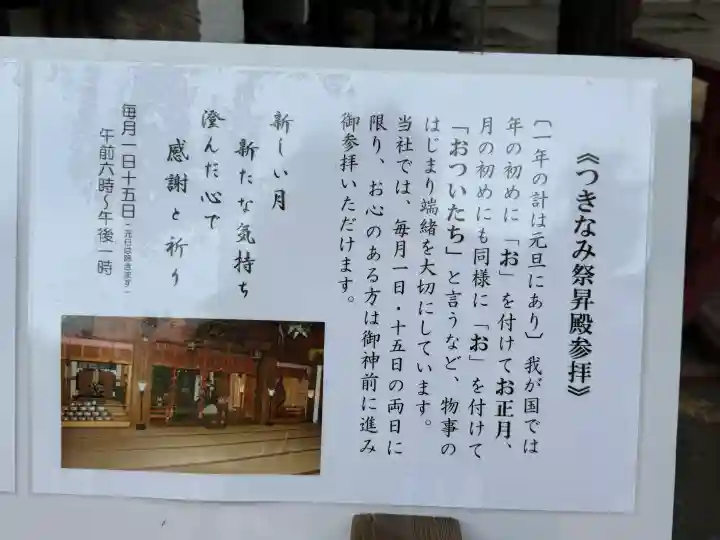 《つきなみ祭昇殿参拝》
〔一年の計は元旦にあり〕我が国では
年の初めに「お」を付けてお正月、
月の初めにも同様に「お」を付けて
「おついたち」と言うなど、物事の
はじまり端緒を大切にしています。
当社では、毎月一日・十五日の両日に
限り、お心のある方は御神前に進み
御参拝いただけます。
新しい月
新たな気持ち
澄んだ心で
感謝と祈り
毎月一日十五日(元日は除きます)
午前六時〜午後一時